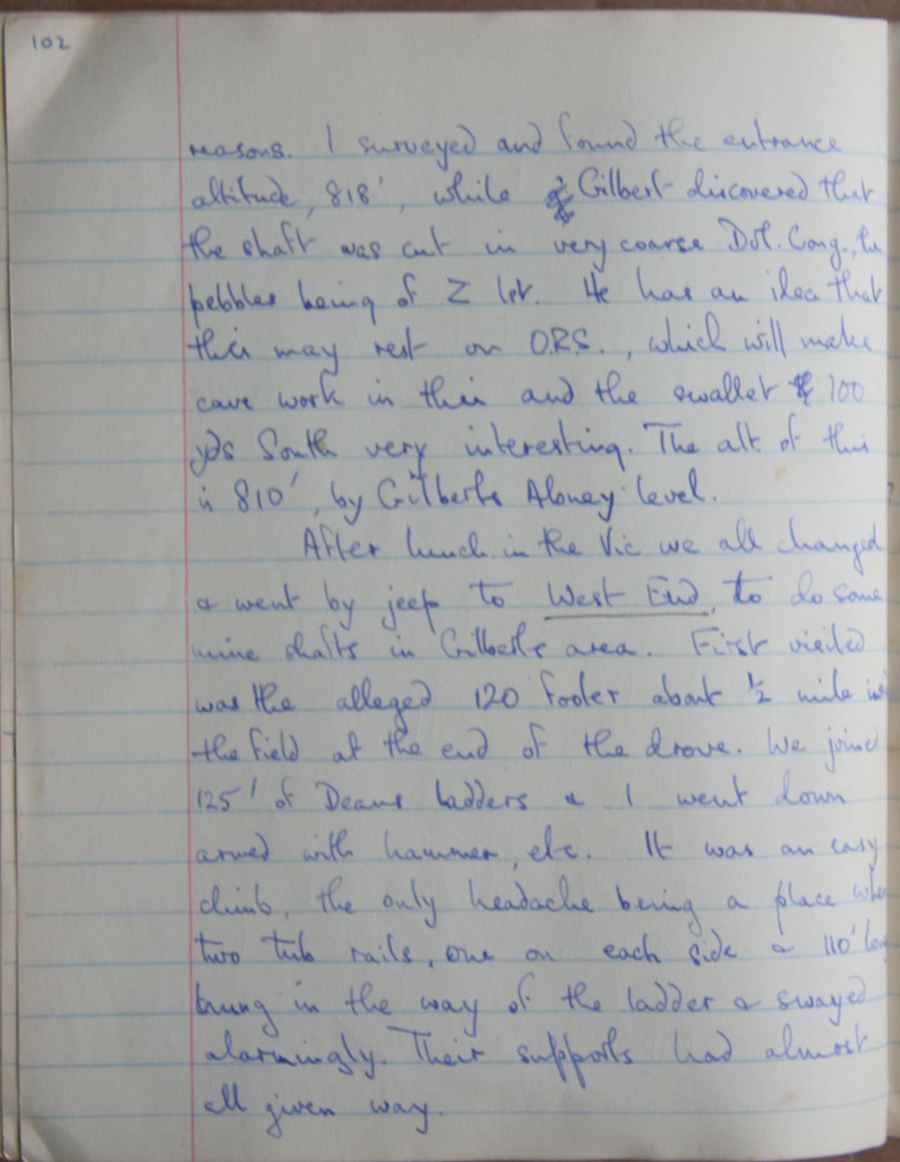 102
reasons. I surveyed and found the entrance
altitude, 818', while Gilbert discovered that
the shaft was cut in very coarse Dol. Cong., the
pebbles being of Z lst. He has an idea that
this may rest on O.R.S., which will make
cave work in this and the swallet 100
yds South very interesting. The alt. of this
is 810', by Gilberts Abney level.
After lunch in the Vic we all changed
& went by jeep to West End, to do some
mine shafts in Gilberts area. First visited
was the alleged 120 footer about ½ mile in
the field at the end of the drove. We joined
125' of Deans ladders & I went down
armed with hammer, etc. It was an easy
climb, the only headache being a place where
two tub rails, one on each side & 110' long
hung in the way of the ladder & swayed
alarmingly. Their supports had almost
all given way.